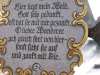 Hier liegt mein Weib
Gott sei's gedankt
so oft hat sie mit mir gezankt
O lieber Wanderer
geh gleich fort von hier
sonst steht sie auf
und zankt mit Dir.